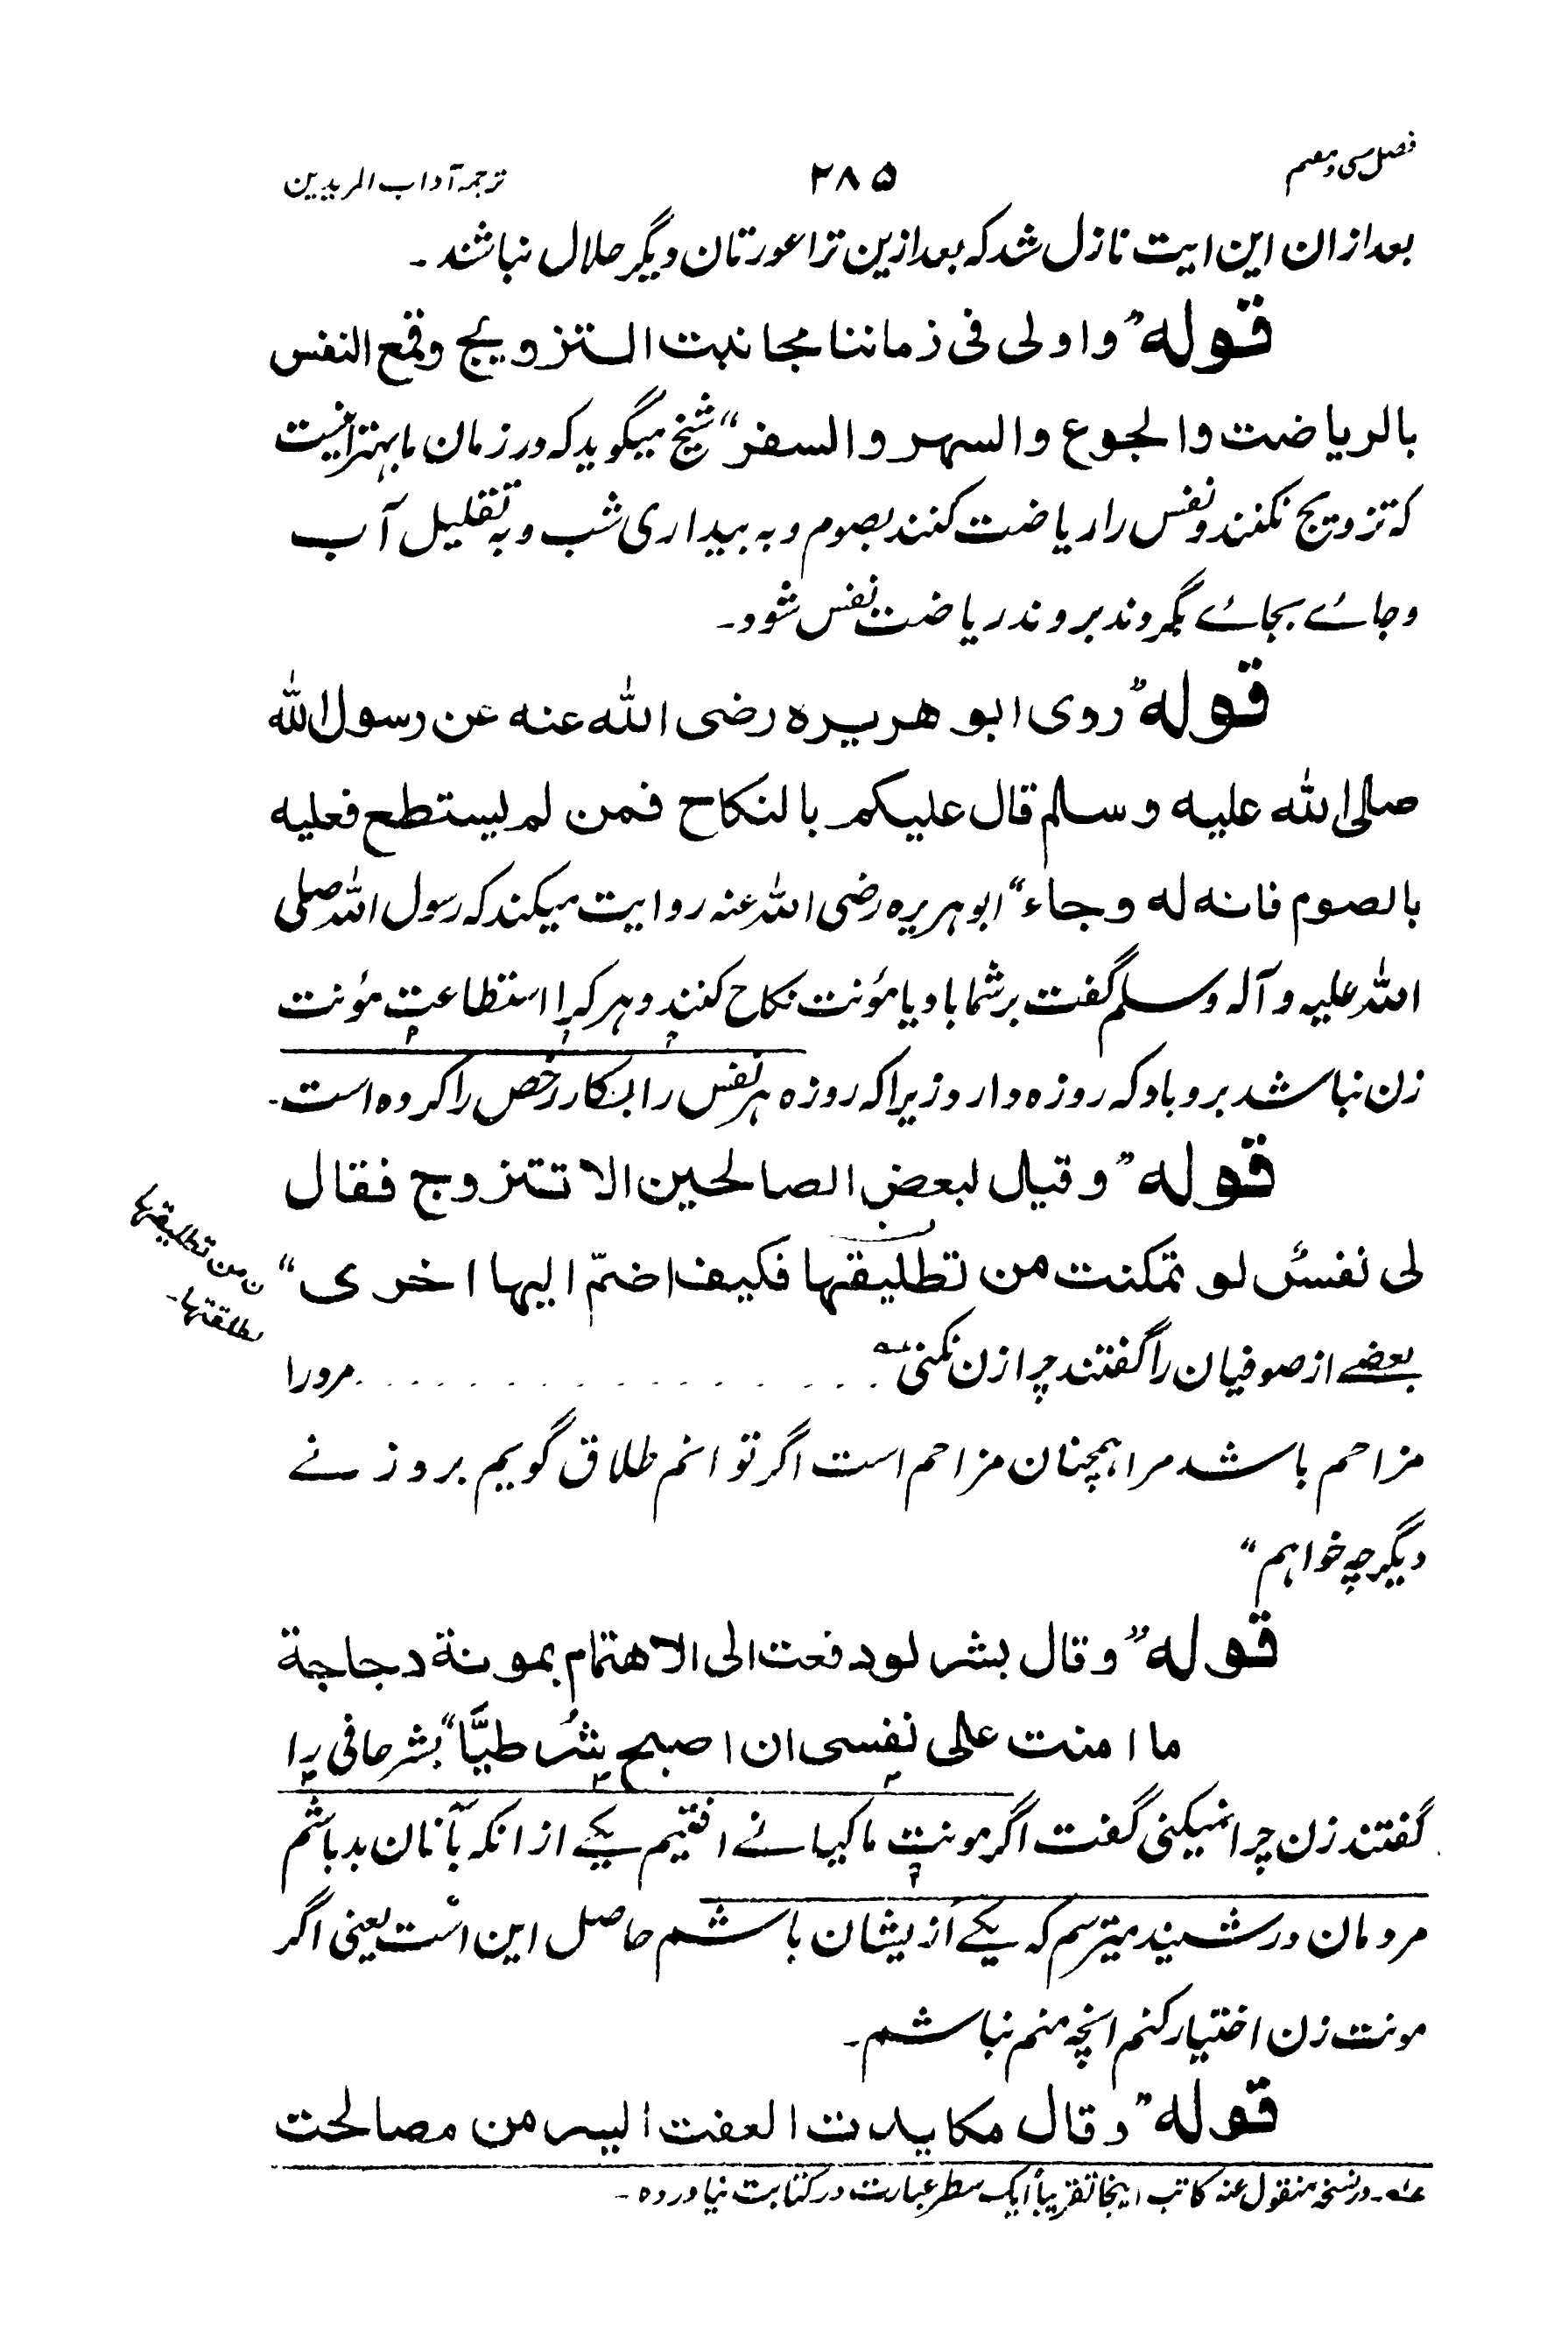 فصل سی و هفتم
۲۸۵
ترجمہ آداب المریدین
بعد ازان این ایت نازل شد که بعد ازین ترا عورتان دیگر حلال نباشند۔
قوله ” واولى فى زماننا مجانبت التزويج وقمع النفس
بالرياضت والجوع والسهر والسفر “ شیخ میگوید که در زمان ما بهتر اینست
که تزویج نکنند و نفس را ریاضت کنند بصوم و به بیداری شب و به تقلیل آب
و جائے بجائے بگردند بروند ریاضت نفس شود۔
قوله ” روى ابو هريره رضى الله عنه عن رسول الله
صلى الله عليه وسلم قال عليكم بالنكاح فمن لم يستطع فعليه
بالصوم فانه له وجاء “ ابو هریره رضی الله عنه روایت میکند که رسول الله صلی
الله علیه و آله وسلم گفت بر شما باد یا مؤنت نکاح کنند و هر کرا استطاعت مؤنت
زن نباشد برو باد که روزه دارد زیرا که روزه هر نفس را بسکار رخص را کرده است۔
قوله ” وقيل لبعض الصالحين الا تتزوج فقال
لى نفسٌ لو تمكنت من تطليقها فكيف اضمّ اليها اخرى “
ن من تطليقها
لطلقتها۔
بعضے از صوفیان را گفتند چرا زن نکنی عه . . . . . . . . . . . . . . . . مرورا
مزاحم باشد مرا همچنان مزاحم است اگر توانم طلاق گویم بروز نے
دیگر چه خواهم “
قوله ” وقال بشر لو دفعت الى الاهتمام بمونة دجاجة
ما امنت على نفسى ان اصبح شُرطيًّا “ بشر حافی را
گفتند زن چرا نمیکنی گفت اگر مونت ماکیانے افتیم یکے از انکه بآنان بد باشم
مردمان در شنید میترسم که یکے از یشان باشم حاصل این است یعنی اگر
مونت زن اختیار کنم انچه منم نباشم۔
قوله ” وقال مكايدت العفت اليسر من مصالحت
عه۔ در نسخه منقول عنه کاتب اینجا تقریباً ایک سطر عبارت در کتابت نیاورده۔